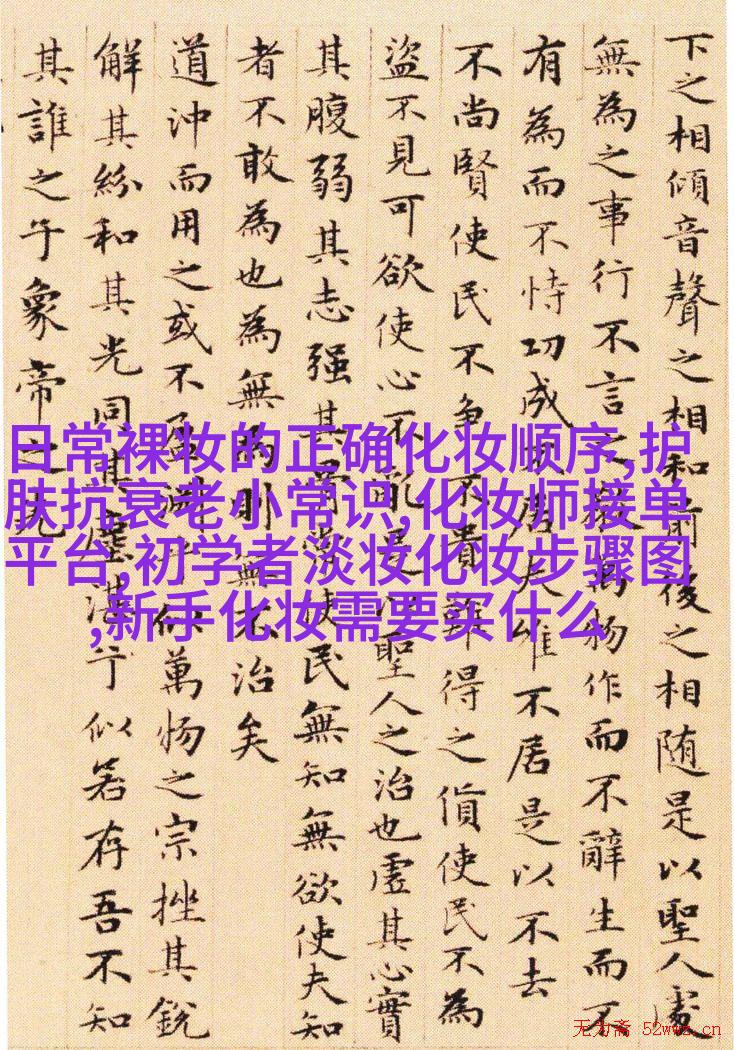 下之相傾音聲之相和前後之相随是以聖人處
無為之事行不言之物作而不辭生而不
有為而不恃功成夫唯不居是以不去
不尚賢使民不争不貴難得之貨使民不為
盜不見可欲使心不亂是聖人之治也虛其心實
其腹弱其志强其骨常使民無知無欲使夫知
者不敢為也為無則無不治矣
道沖而用之或不盈乎似萬物之宗挫其銳
解其紛和其光同其塵湛兮似若存吾不知
其誰之子象帝之先
日常裸妆的正确化妆顺序,护
肤抗衰老小常识,化妆师接单
平台,初学者淡妆化妆步骤图
,新手化妆需要买什么
无为斋 52wwz.cn